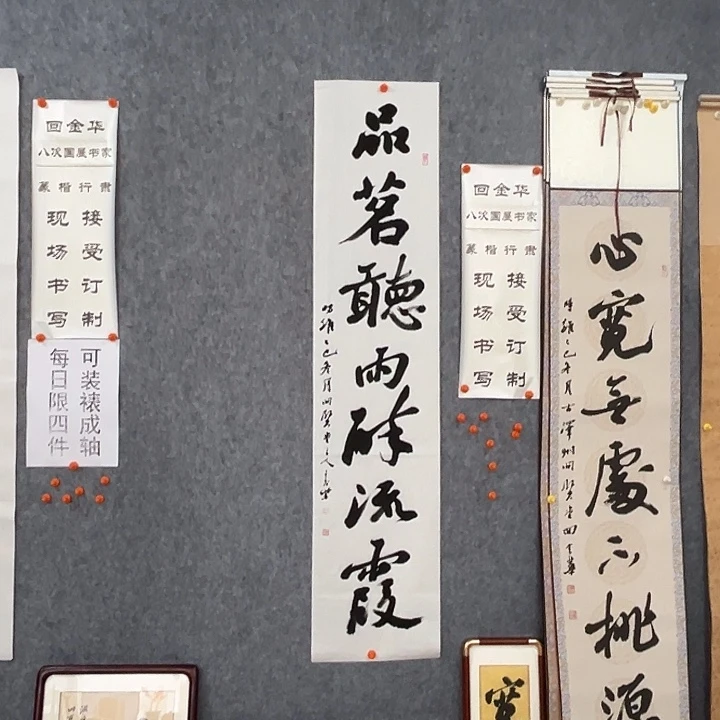 回金华
八次国展书家
篆楷行肃
接受订制
现场书写
可装裱成轴
每日限四件
品茗聽雨醉流霞
回金华
八次国展书家
篆楷行肃
接受订制
现场书写
心寬無處不桃源
寬